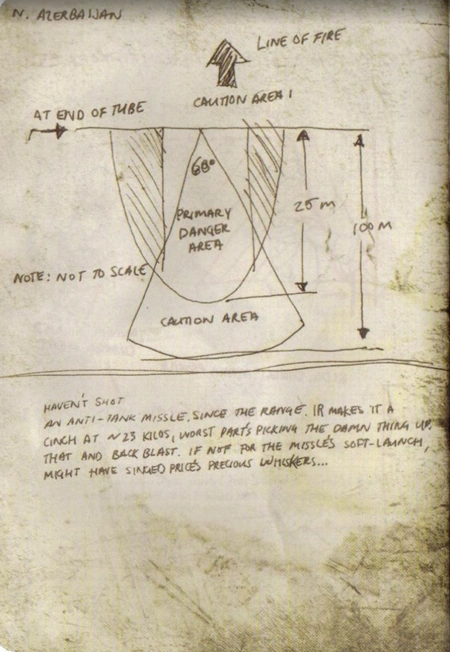 N. AZERBAIJAN
LINE OF FIRE
CAUTION AREA 1
AT END OF TUBE
60°
25 M
100 M
PRIMARY
DANGER
AREA
NOTE: NOT TO SCALE
CAUTION AREA
HAVEN'T SHOT
AN ANTI-TANK MISSLE, SINCE THE RANGE. IR MAKES IT A
CINCH AT ~23 KILOS, WORST PART'S PICKING THE DAMN THING UP.
THAT AND BACK BLAST. IF NOT FOR THE MISSLE'S SOFT-LAUNCH,
MIGHT HAVE SINGED PRICE'S PRECIOUS WHISKERS...